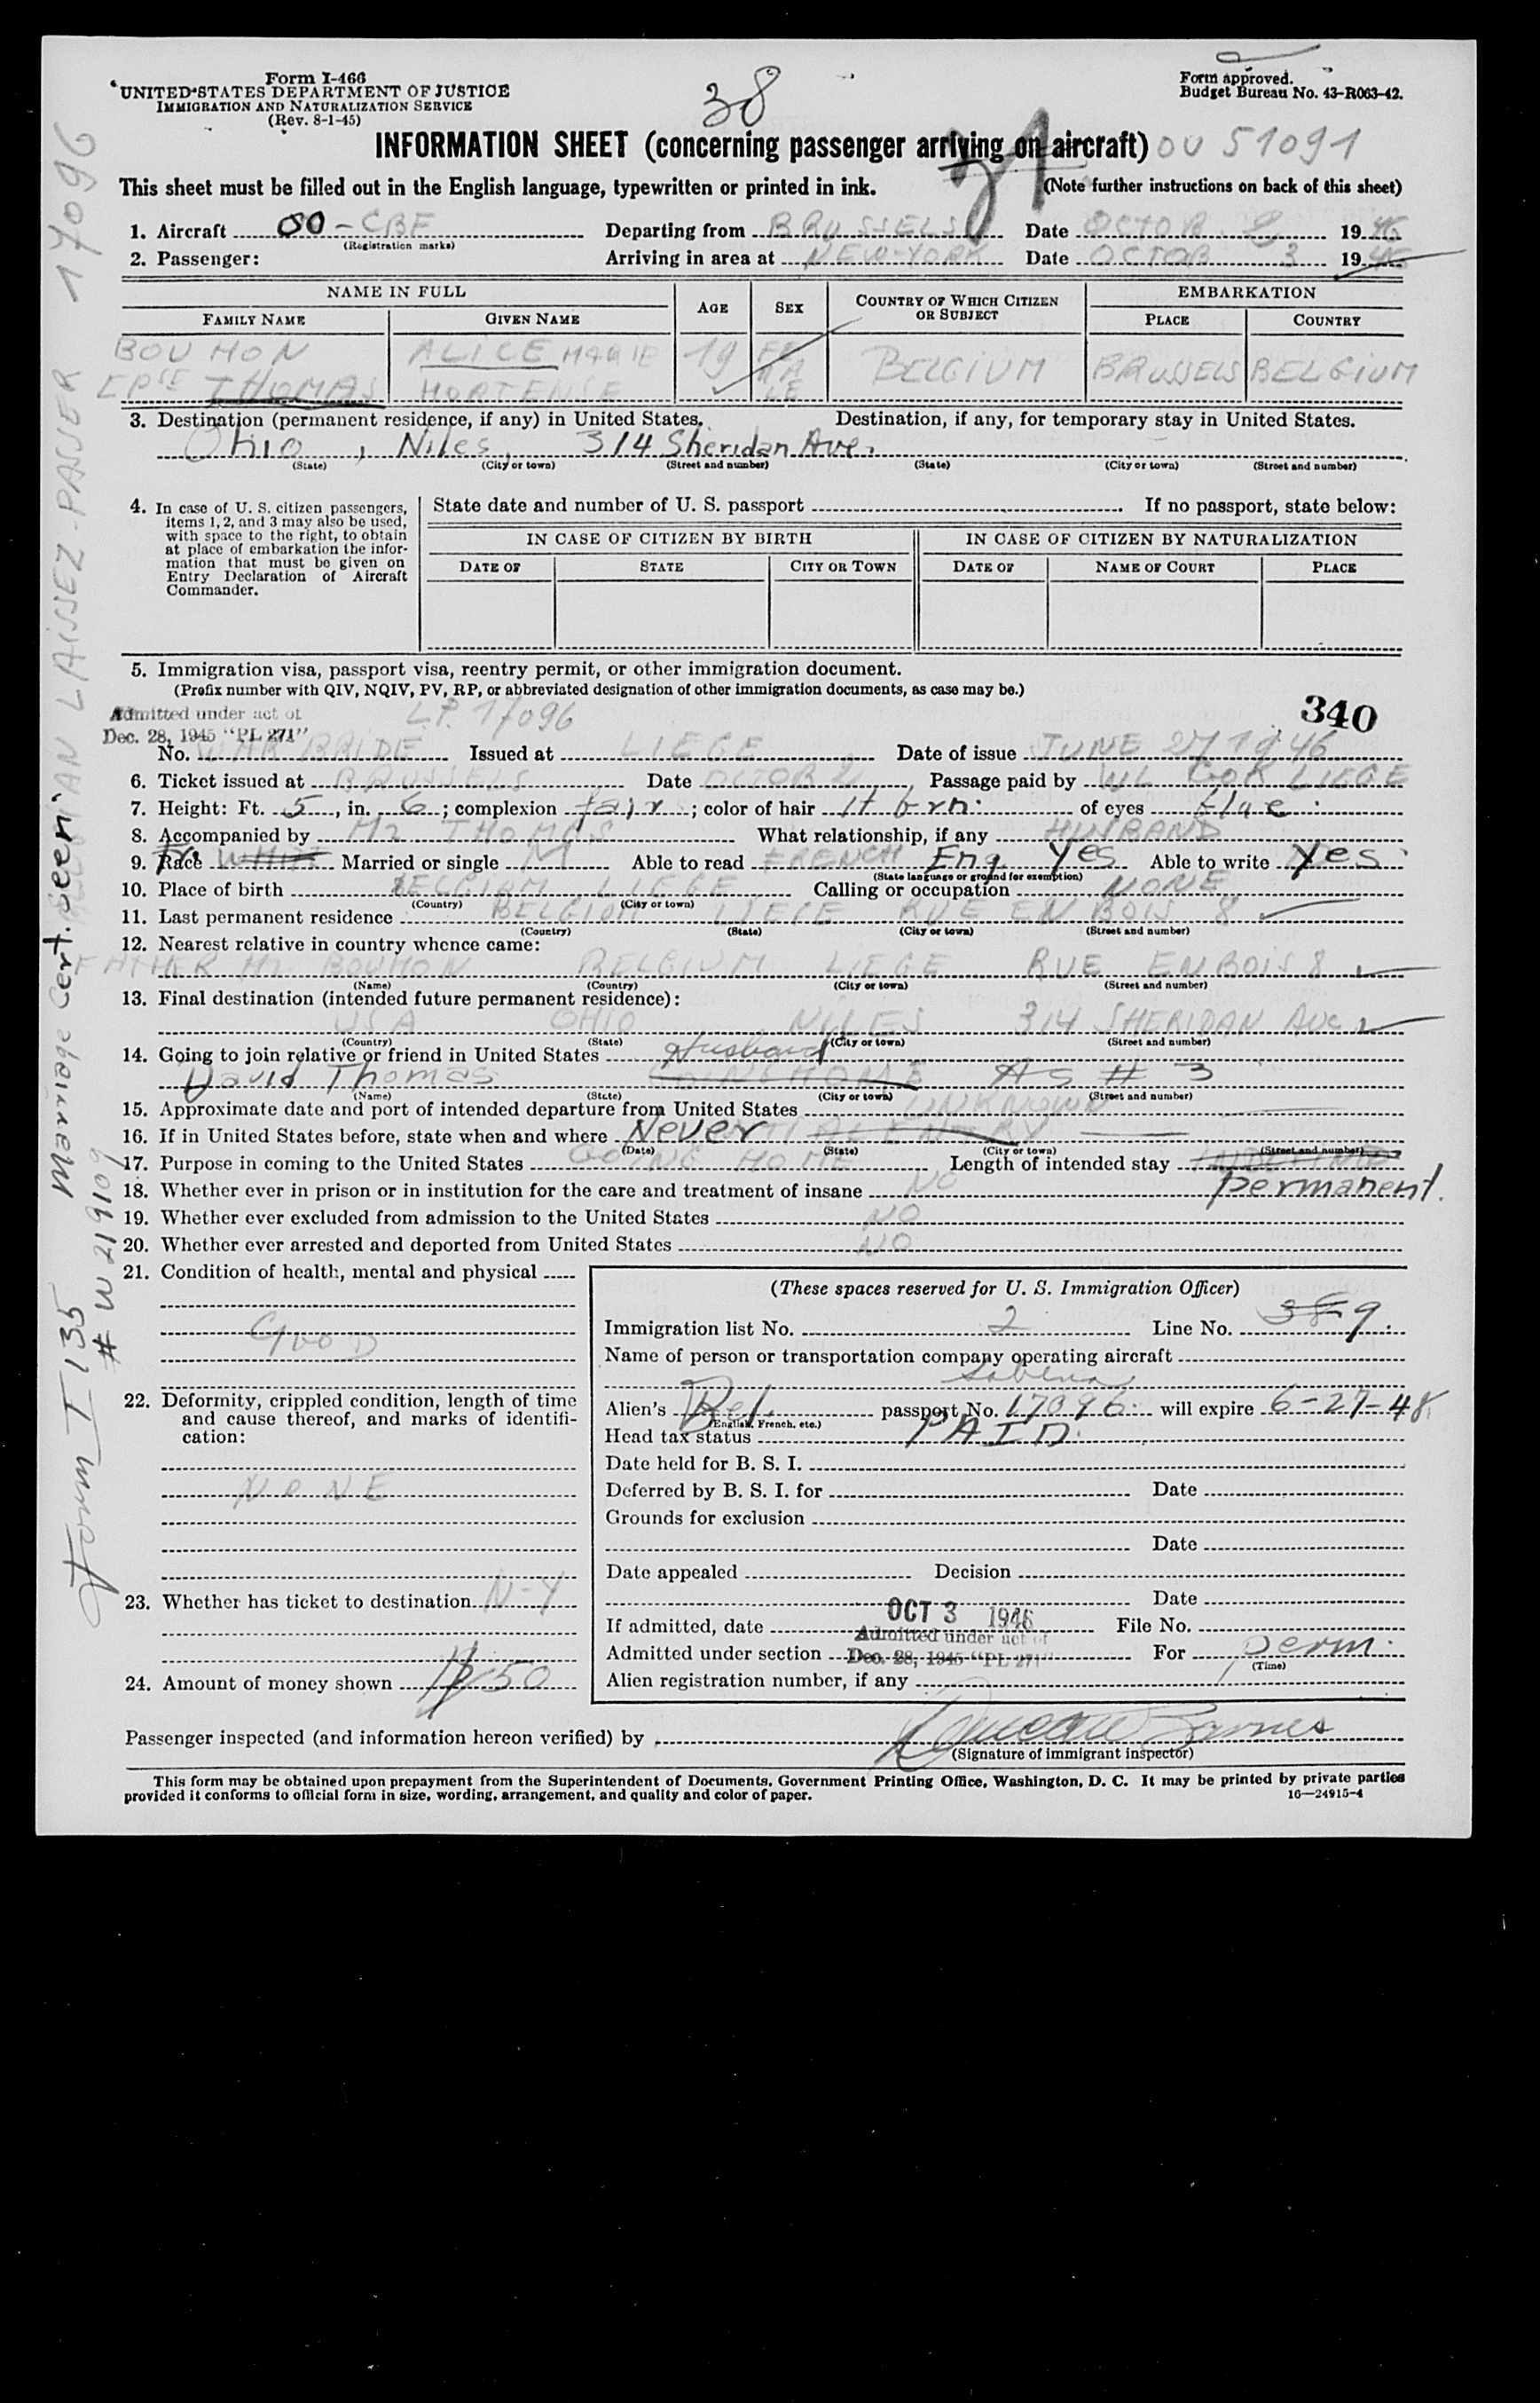 Form I-466
UNITED STATES DEPARTMENT OF JUSTICE
IMMIGRATION AND NATURALIZATION SERVICE
(Rev. 8-1-45)
38
Form approved.
Budget Bureau No. 43-R063-42.
INFORMATION SHEET (concerning passenger arriving on aircraft) OU 51091
This sheet must be filled out in the English language, typewritten or printed in ink. (Note further instructions on back of this sheet)
1. Aircraft OO-CBF Departing from BRUSSELS Date OCTOB. 2 1946
(Registration marks)
2. Passenger: Arriving in area at NEW-YORK Date OCTOB 3 19
NAME IN FULL AGE SEX COUNTRY OF WHICH CITIZEN OR SUBJECT EMBARKATION
FAMILY NAME GIVEN NAME PLACE COUNTRY
BOUMON ALICE MARIE 19 FEMALE BELGIUM BRUSSELS BELGIUM
EPSE THOMAS HORTENSE
3. Destination (permanent residence, if any) in United States. Destination, if any, for temporary stay in United States.
Ohio, Niles, 314 Sheridan Ave.
(State) (City or town) (Street and number) (State) (City or town) (Street and number)
4. In case of U. S. citizen passengers, items 1, 2, and 3 may also be used, with space to the right, to obtain at place of embarkation the information that must be given on Entry Declaration of Aircraft Commander.
State date and number of U. S. passport If no passport, state below:
IN CASE OF CITIZEN BY BIRTH IN CASE OF CITIZEN BY NATURALIZATION
DATE OF STATE CITY OR TOWN DATE OF NAME OF COURT PLACE
5. Immigration visa, passport visa, reentry permit, or other immigration document.
(Prefix number with QIV, NQIV, PV, RP, or abbreviated designation of other immigration documents, as case may be.)
Admitted under act of
Dec. 28, 1945 "PL 271"
L.P. 17096
340
No. WAR BRIDE Issued at LIEGE Date of issue JUNE 27 1946
6. Ticket issued at BRUSSELS Date OCTOB 2 Passage paid by LIEGE
7. Height: Ft. 5, in. 6; complexion fair; color of hair lt brn. of eyes blue.
8. Accompanied by Mr THOMAS What relationship, if any HUSBAND
9. Race WHITE Married or single M Able to read FRENCH Eng Yes Able to write Yes
(State language or ground for exemption)
10. Place of birth BELGIUM LIEGE Calling or occupation NONE
(Country) (City or town)
11. Last permanent residence BELGIUM LIEGE RUE EN BOIS 8
(Country) (State) (City or town) (Street and number)
12. Nearest relative in country whence came:
FATHER Mr BOUMON BELGIUM LIEGE RUE EN BOIS 8
(Name) (Country) (City or town) (Street and number)
13. Final destination (intended future permanent residence):
USA OHIO NILES 314 SHERIDAN AVE
(Country) (State) (City or town) (Street and number)
14. Going to join relative or friend in United States Husband
David Thomas GOING HOME As # 3
(Name) (State) (City or town) (Street and number)
15. Approximate date and port of intended departure from United States UNKNOWN
16. If in United States before, state when and where Never
(Date) (State) (City or town) (Street and number)
17. Purpose in coming to the United States GOING HOME Length of intended stay
permanent.
18. Whether ever in prison or in institution for the care and treatment of insane NO
19. Whether ever excluded from admission to the United States NO
20. Whether ever arrested and deported from United States NO
21. Condition of health, mental and physical
GOOD
22. Deformity, crippled condition, length of time and cause thereof, and marks of identification:
NONE
23. Whether has ticket to destination N-Y
24. Amount of money shown $50
(These spaces reserved for U. S. Immigration Officer)
Immigration list No. 2 Line No. 38 9.
Name of person or transportation company operating aircraft
Sabena
Alien's Bel. passport No. 17096 will expire 6-27-48
(English, French, etc.)
Head tax status PAID.
Date held for B. S. I.
Deferred by B. S. I. for Date
Grounds for exclusion
Date
Date appealed Decision
Date
If admitted, date OCT 3 1946 File No.
Admitted under section Admitted under act of Dec. 28, 1945 "PL 271" For perm.
(Time)
Alien registration number, if any
Passenger inspected (and information hereon verified) by
(Signature of immigrant inspector)
This form may be obtained upon prepayment from the Superintendent of Documents, Government Printing Office, Washington, D. C. It may be printed by private parties
provided it conforms to official form in size, wording, arrangement, and quality and color of paper. 16—24915-4
LAISSEZ-PASSER 17096
Marriage Cert. seen
Form I 135
# W219109